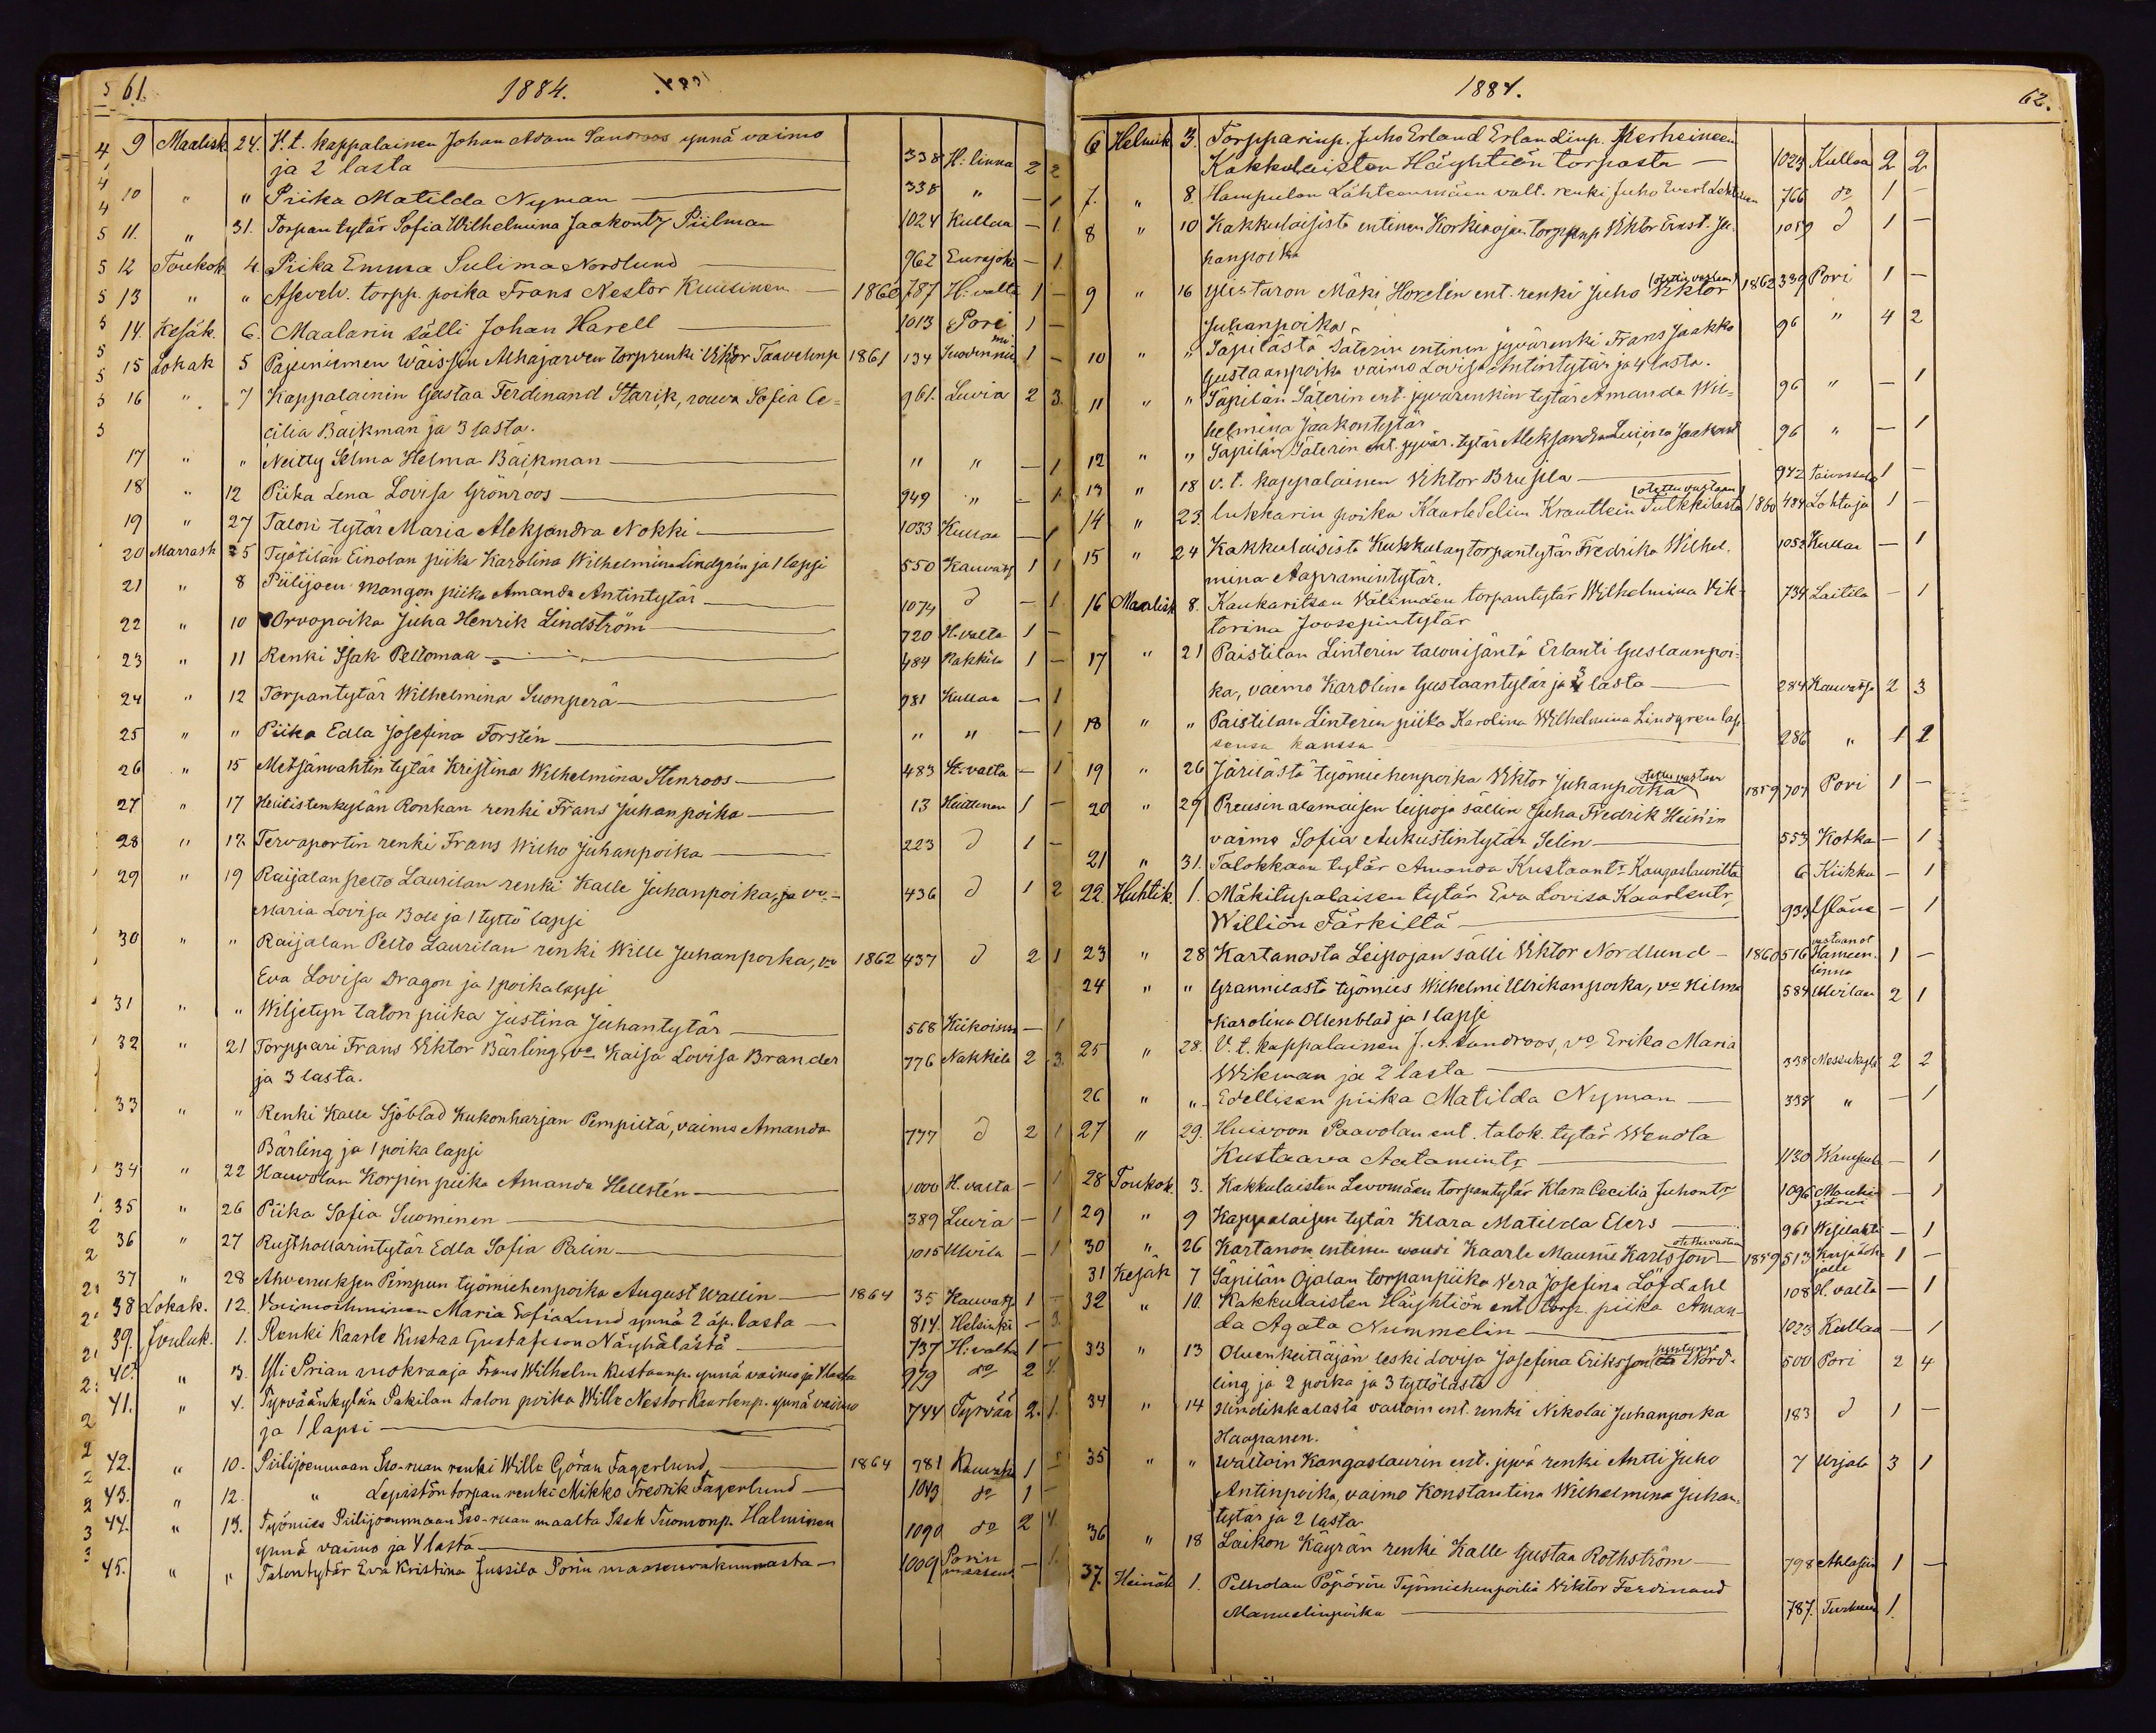 61.
1884.
9 Maalisk. 24. V. t. kappalainen Johan Adam Sandroos ynnä vaimo
ja 2 lasta 338 H:linna 2 2
10 " " Piika Matilda Nyman 338 " — 1
11. " 31. Torpan tytär Sofia Wilhelmina Jaakontr Piilman 1024 Kullaa — 1
12 Toukok 4. Piika Emma Sulima Nordlund 962 Eurajoki — 1
13 " " Asevelv. torpp. poika Frans Nestor Kuusinen 1860 787 H:valta 1 —
14. Kesäk. 6. Maalarin sälli Johan Harell 1013 Pori 1 —
15 Lokak 5 torprenki Viktor Taavetinp 1861 134 Suodenniemi 1 —
16 " 7 Kappalainin Gustaa Ferdinand Starik, rouva Sofia Ce= 961. Luvia 2 3.
cilia Bäckman ja 3 lasta.
17 " " Neitty Selma Helma Bäckman " " — 1
18 " 12 Piika Lena Lovisa Grönroos 949 " — 1
19 " 27 Talon tytär Maria Aleksandra Nokki 1033 Kullaa — 1
20 Marrask 25 Työtilan Einolan piika Karolina Wilhelmina Lindgrén ja 1 lapsi 550 Kauvatsa 1 1
21 " 8 Piilijoen Mangon piika Amanda Antintytär 1074 d — 1
22 " 10 Orvopoika Juha Henrik Lindström 720 H.valta 1 —
23 " 11 Renki Isak Peltomaa 484 Nakkila 1 —
24 " 12 Torpantytär Wilhelmina Suonperä 981 Kullaa — 1
25 " " Piika Edla Josefina Forstén " " — 1
26 " 15 Metsänvahtin tytär Kristina Wilhelmina Stenroos 483 H.valta — 1
27 " 17 Huitistenkylän Ronkan renki Frans Juhanpoika 13 Huittinen 1 —
28 " 17 Tervaportin renki Frans Wilho Juhanpoika 223 d 1 —
29 " 19 Raijalan Pelto Laurilan renki Kalle Juhanpoika, ja vo. 436 d 1 2
Maria Lovisa Bole ja 1 tyttö lapsi
30 " " Raijalan Pelto Laurilan renki Wille Juhanpoika, vo 1862 437 d 2 1
Eva Lovisa Dragon ja 1 poikalapsi
31 " " Wiljetyn talon piika Justina Juhantytär 568 Kiikoinen — 1
32 " 21 Torppari Frans Viktor Bärling, vo Kaisa Lovisa Brander 776 Nakkila 2 3.
ja 3 lasta.
33 " " Renki Kalle Sjöblad Kukonharjan Pempiltä, vaimo Amanda 777 d 2 1
Bärling ja 1 poika lapsi
34 " 22 Hauvolan Korpin piika Amanda Hellstén 1000 H.valta — 1
35 " 26 Piika Sofia Suominen 389 Luvia — 1
36 " 27 Rusthollarintytär Edla Sofia Palin 1015 Ulvila — 1
37 " 28 Ahvenuksen Pimpun työmiehenpoika August Wallin 1864 35 Kauvatsa 1 —
38 Lokak. 12. Vaimoihminen Maria Sofia Lund ynnä 2 äp. lasta 814. Helsinki — 3.
39. Jouluk. 1. Renki Kaarle Kustaa Gustafsson Näyhälästä 737 H:valta 1 —
40. " 3. Yli Prian ruokraaja Frans Wilhelm Kustaanp. ynnä vaimo ja 4 lasta 979 do 2 4.
41. " 4. Tyrväänkylän Pakilan talon poika Wille Nestor Kaarlenp. ynnä vaimo 744 Tyrvää 2. 1.
ja 1 lapsi
42. " 10. Piilijoenmaan Iso-ruan renki Wille Göran Fagerlund 1864 781 Kauvatsa 1
43. " 12. " Lepistön torpan renki Mikko Fredrik Fagerlund 1043 do 1 —
44. " 13. Työmies Piilijoenmaan Iso-ruan maalta Isak Tuomonp. Halminen 1090 do 2 4.
ynnä vaimo ja 4 lasta
45. " " Talontytär Eva Kristina Jussila Porin maaseurakunnasta 1009 Porin maaseur — 1.
1884.
62.
6 Helmik. 3. Torpparinp. Juho Erland Erlandinp. Merheineen
Kakkulaisten Häyhtiön torpasta 1023 Kullaa 2 2
7. " 8. Hampulan Lähteenmäen valt. renki Juho Evert Lehtinen 766 do 1 —
8 " 10 Kakkulaisista entinen Korkeaojan torppnp Viktor Ernst Ju. 1059 d 1 —
hanpoika
9 " 16 Ylistaron Mäki Horelin ent. renki Juho Viktor (otettu vastaan) 1862 339 Pori 1 —
Juhanpoika
10 " " Säpilästä Säterin entinen jyvärenki Frans Jaakko 96 " 4 2
Gustaanpoika vaimo Lovisa Antintytär ja 4 lasta.
11 " " Säpilän Säterin ent. jyvärenkin tytär Amanda Wil= 96 " — 1
helmina Jaakontytär
12 " " Säpilän Säterin ent. jyvär. tytär Aleksandra Lovisa Jaakont 96 " — 1
13 " 18 V. t. kappalainen Viktor Brusila 942 Taivassalo 1 —
14 " 23. lukkarin poika Kaarle Selim Krauttein Sulkkilasta (otettu vastaan) 1860 484 Lohtaja 1 —
15 " 24 Kakkulaisista Kukkulan torpantytär Fredrika Wilhel. 1052 Kullaa — 1
mina Aapramintytär.
16 Maalisk 8. Kaukaritsan Välimäen torpantytär Wilhelmina Vik- 734 Laitila — 1
torina Joosepintytär
17 " 21 Paistilan Linterin talonisäntä Erlanti Gustaanpoi=
ka, vaimo Karolina Gustaantytär ja 3 lasta 284 Kauvatsa 2 3
18 " " Paistilan Linterin piika Karolina Wilhelmina Lindgren lap
sensa kanssa 286 " 1 1
19 " 26 Järilästä työmiehenpoika Viktor Juhanpoika otettu vastaan 1859 707 Pori 1 —
20 29 Preusin alamaisen leipoja sällin Juha Fredrik Heinin
vaimo Sofia Aukustintytär Selin 553 Kotka — 1
21 " 31. Talokkaan tytär Amanda Kustaantr Kangaslaurilta 6 Kiikka — 1
22. Huhtik. 1. Mäkitupalaisen tytär Eva Lovisa Kaarlentr
Williön Färkiltä 933 Yläne — 1
23 " 28 Kartanosta Leipojan sälli Viktor Nordlund 1860 516 vastaanot Hämeenlinna 1 —
24 " " Grannilasta työmies Wilhelmi Ulrikanpoika, vo Hilma 584 Ulvilaan 2 1
Karolina Ollenblad ja 1 lapsi
25 " 28. V. t. kappalainen J. A. Sandroos, vo Erika Maria
Wikman ja 2 lasta 338 Messukylä 2 2
26 " " Edellisen piika Matilda Nyman 338 " — 1
27 " 29. Huivoon Paavolan ent. talok. tytär Wendla
Kustaava Aatamintr 1130 Wampula — 1
28 Toukok. 3. Kakkulaisten Levomäen torpantytär Klara Cecilia Juhontr 1096 Mouhijärvi — 1
29 " 9 Kappalaisen tytär Klara Matilda Elers 961 Wesilahti — 1
30 " 26 Kartanon entinen woudi Kaarle Maunu Karlsson otettu vastaan 1859 513 Karjalohjalle 1 —
31 Kesäk 7 Säpilän Ojalan torpanpiika Vera Josefina Löfdahl 108 H. valta — 1
32 " 10. Kakkulaisten Häyhtiön ent. torp. piika Aman-
da Agata Nummelin 1023 Kullaa — 1
33 " 13 Oluenkeittäjän leski Lovisa Josefina Eriksson syntynyt Nord- 500 Pori 2 4
ling ja 2 poika ja 3 tyttölasta
34 " 14 Hindikkalasta vastain ent. renki Nikolai Juhanpoika 183 d 1 —
Haapanen.
35 " " Waltoin Kangaslaurin ent. jyvä renki Antti Juho 7 Urjala 3 1
Antinpoika, vaimo Konstantina Wilhelmina Juhan=
tytär ja 2 lasta
36 " 18 Laikon Käyrän renki Kalle Gustaa Rothström 798 Ahlainen 1 —
37. Heinäk 1. Työmiehenpoika Viktor Ferdinand
Manuelinpoika 787. 1.